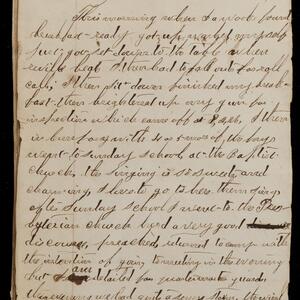 This morning when I awoke found
breakfast ready got up washed myself
just got set down to the table when
revilee beat I then had to fall out for roll
call, I then sit down finished my break
fast then brightened up my gun for
inspection which came off at 8
in company with 4 or 5 more of the boys
went to Sunday school at the Baptist
Church. The singing is so sweet and
charming I love to go to hear them sing
after Sunday School I went to the Pres
byterian Church heard a very good
discourse preached, returned to camp with
the intention of going to meeting in the evening
but I am detailed for guard